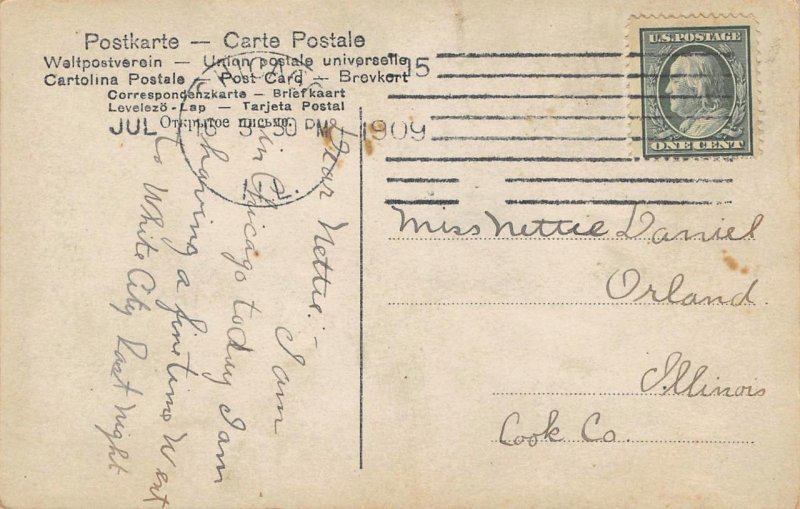 Postkarte — Carte Postale
Weltpostverein — Union postale universelle
Cartolina Postale — Post Card — Brevkort
Correspondenzkarte — Briefkaart
Levelezö-Lap — Tarjeta Postal
Открытое письмо.
JUL 16 5 30 PM 1909
15
U.S. POSTAGE
ONE CENT
Dear Nettie:- I am
in Chicago today I am
having a fine time Went
to White City Last Night
Miss Nettie Daniel
Orland
Illinois
Cook Co.